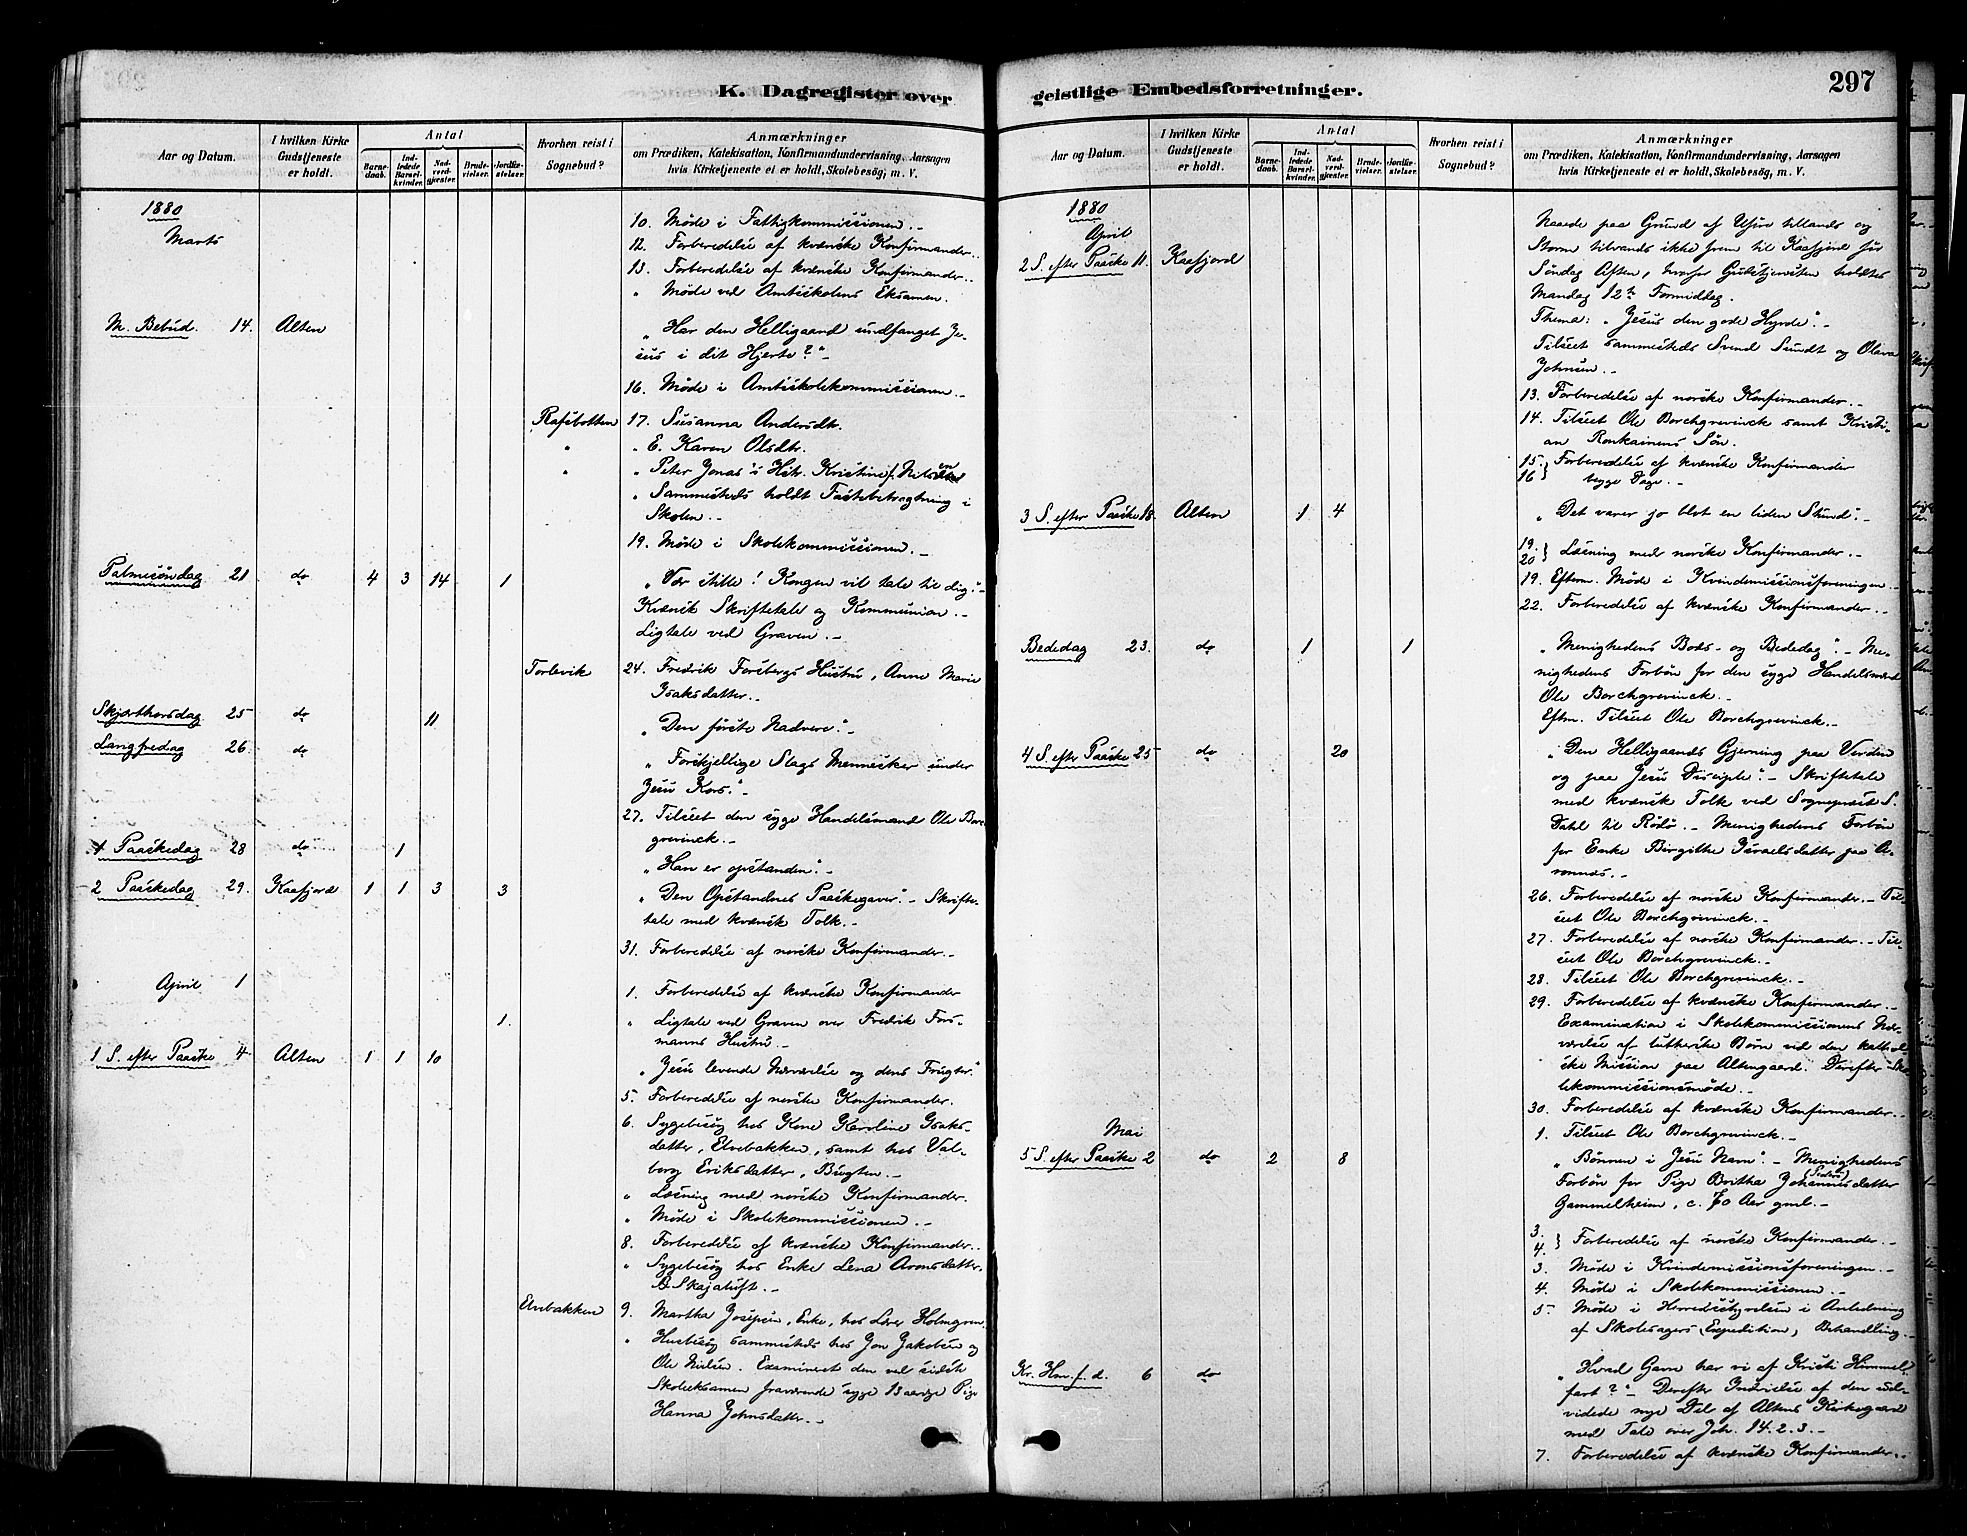 K. Dagregister over
Aar og Datum.
I hvilken Kirke Gudstjeneste er holdt.
Antal
Barnedaab.
Indledede Barselkvinder.
Nadverdgjæster.
Brudevielser.
Jordfæstelser.
Hvorhen reist i Sognebud?
Anmærkninger
om Prædiken, Katekisation, Konfirmandundervisning, Aarsagen
hvis Kirketjeneste ei er holdt, Skolebesög, m. V.
1880
Marts
10. Møde i Fattigkommissionen.-
12. Forberedelse af kvænske Konfirmander..
13. Forberedelse af kvænske Konfirmander..
" Møde ved Amtsskolens Eksamen.
M. Bebud. 14. Alten
"Har den Helligaand undfanget Je-
sus i dit Hjerte?"-
16. Møde i Amtsskolekommissionen.-
Rafsbotten 17. Susanna Andersdtr.
" " E. Karen Olsdtr.
" " Peter Jonas's Hstr. Kristine f. Nils
" Sammesteds holdt Fastebetragtning i
Skolen.-
19. Møde i Skolekommissionen.-
Palmesöndag 21 do 4 3 14 1
"Vær stille! Kongen vil tale til dig."-
Kvænsk Skriftetale og Kommunion.-
Ligtale ved Graven.-
Torlevik 24. Fredrik Forsbergs Hustru, Anne Marie
Isaksdatter.-
Skjærthorsdag 25 do 11
"Den første Nadvere".-
Langfredag 26. do
"Forskjellige Slags Mennesker under
Jesu Kors."-
27. Tilseet den syge Handelsmand Ole Borch-
grevinck.-
1 Paaskedag 28 do 1
"Han er opstanden".-
2 Paaskedag 29. Kaafjord 1 1 3 3
"Den Opstandnes Paaskegaver".- Skrifte-
tale med kvænsk Tolk.-
31. Forberedelse af norske Konfirmander.-
April 1
1. Forberedelse af kvænske Konfirmander
1. " Ligtale ved Graven over Fredrik Fors-
manns Hustru.-
1 S. efter Paaske 4. Alten 1 1 10
"Jesu levende Nærværelse og dens Frugter."
5. Forberedelse af norske Konfirmander.
6. Sygebesøg hos Kone Karoline Isaks-
datter, Elvebakken, samt hos Val-
borg Eriksdatter, Bugten.-
" Læsning med norske Konfirmander.
" Møde i Skolekommissionen.-
8. Forberedelse af kvænske Konfirmander..
" Sygebesøg hos Enke Lena Aronsdatter,
Skajaluft.-
Elvebakken 9. Martha Josepsen, Enke, hos Lærer Holmgren.
" Husbesøg sammesteds hos Jon Jakobsen og
Ole Nielsen. Examineret den ved sidste
Skoleeksamen fraværende syge 13 aarige Pige
Hanna Johnsdatter.-
geistlige Embedsforretninger.
297
Aar og Datum.
I hvilken Kirke Gudstjeneste er holdt.
Antal
Barnedaab.
Indledede Barselkvinder.
Nadverdgjæster.
Brudevielser.
Jordfæstelser.
Hvorhen reist i Sognebud?
Anmærkninger
om Prædiken, Katekisation, Konfirmandundervisning, Aarsagen
hvis Kirketjeneste ei er holdt, Skolebesög, m. V.
1880
April
2 S. efter Paaske 11. Kaafjord
Naaede paa Grund af Uføre tillands og
Storm tilvands ikke frem til Kaafjord før
Søndag Aften, hvorfor Gudstjenesten holdtes
Mandag 12te Formiddag.
Thema: "Jesus den gode Hyrde".-
Tilseet sammesteds Svend Sundt og Olava
Johnsen.-
13. Forberedelse af norske Konfirmander.-
14. Tilseet Ole Borchgrevinck samt Kristi-
an Ronkainens Søn.
15. } Forberedelse af kvænske Konfirmander
16 } begge Dage.-
3 S. efter Paaske 18. Alten 1 4
"Det varer jo blot en liden Stund".-
19. } Læsning med norske Konfirmander.-
20 }
19. Efterm. Møde i Kvindemissionsforeningen.-
22. Forberedelse af kvænske Konfirmander.-
Bededag 23. do 1 1
"Menighedens Bods- og Bededag".- Me-
nighedens Forbøn for den syge Handelsmand
Ole Borchgrevinck.-
Eftm. Tilseet Ole Borchgrevinck.-
4 S. efter Paaske 25 do 20
"Den Helligaands Gjerning paa Verden
og paa Jesu Disciple".- Skriftetale
med kvænsk Tolk ved Sogneprest S.
Dahl til Rødø.- Menighedens Forbøn
for Enke Birgithe Israelsdatter paa A-
ronnes.-
26. Forberedelse af norske Konfirmander.- Til-
seet Ole Borchgrevinck.-
27. Forberedelse af norske Konfirmander.- Til-
seet Ole Borchgrevinck.-
28. Tilseet Ole Borchgrevinck.-
29. Forberedelse af kvænske Konfirmander.-
Examination i Skolekommissionens Nær-
værelse af lutherske Børn ved den katol-
ske Mission paa Altengaard. Derefter Sko-
lekommissionsmøde.-
30. Forberedelse af kvænske Konfirmander.-
Mai
1. Tilseet Ole Borchgrevinck.-
5 S. efter Paaske 2 do 2 8
"Bønnen i Jesu Navn".- Menighedens
Forbøn for Pige Britha Johannesdatter
Gammelheim, c. 70 Aar gml.-
3. } Forberedelse af norske Konfirmander.-
4. }
3. Møde i Kvindemissionsforeningen.-
4. Møde i Skolekommissionen.-
5 Møde i Herredsstyrelsen i Anledning
af Skolesagers (Expedition) Behandling.-
Kr. Hm. f. d. 6 do
"Hvad Gavn har vi af Kristi Himmel-
fart?"- Derefter Indvielse af den ud-
videde nye Del af Altens Kirkegaard
med Tale over Joh. 14.2.3.-
7. Forberedelse af kvænske Konfirmander..